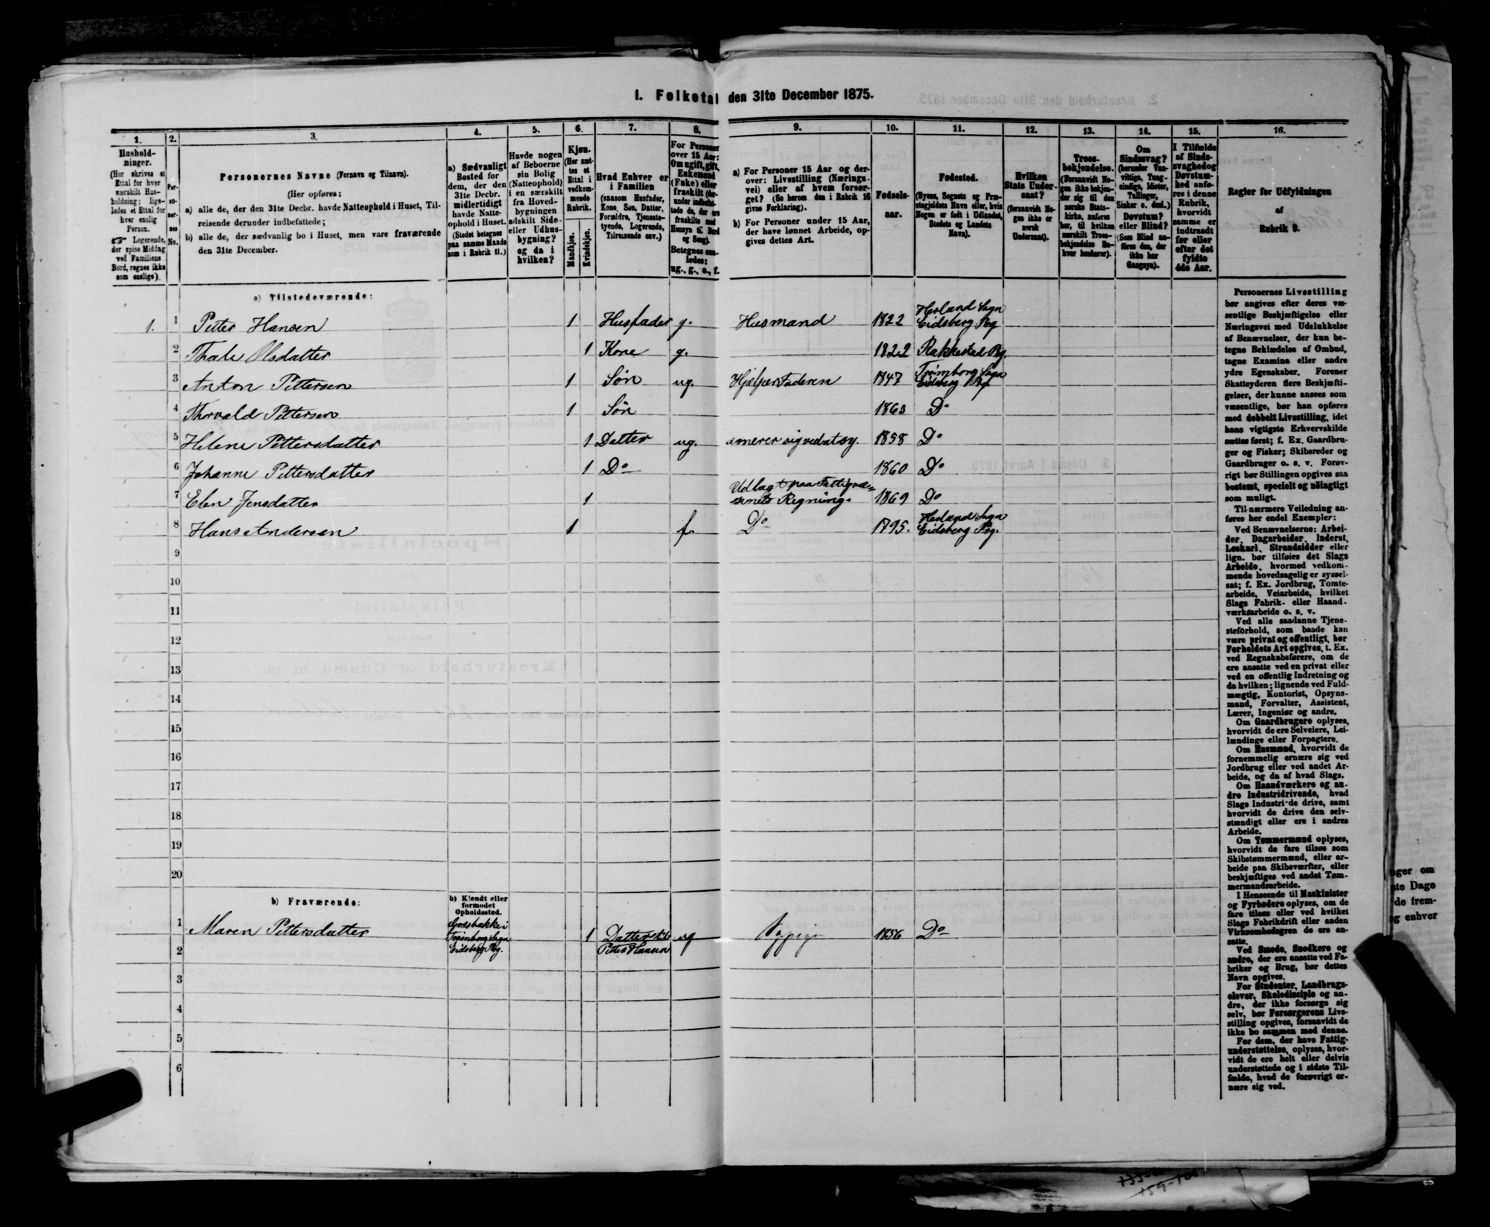 1. Folketal den 31te December 1875.
1. 2. 3. 4. 5. 6. 7. 8. 9. 10. 11. 12. 13. 14. 15. 16.
Husholdninger.
Personernes Navne (Fornavn og Tilnavn).
(Her opføres:
a) alle de, der den 31te Decbr. havde Natteophold i Huset, Tilreisende derunder indbefattede;
b) alle de, der sædvanlig bo i Huset, men vare fraværende den 31te December.
a) Sædvanligt Bosted for dem, der den 31te Decbr. midlertidigt havde Natteophold i Huset.
Havde nogen af Beboerne sin Bolig (Natteophold) i en særskilt fra Hovedbygningen adskilt Side- eller Udhusbygning? og da i hvilken?
Kjøn.
Mandkjøn. Kvindekjøn.
Hvad Enhver er i Familien
For Personer over 15 Aar: Om ugift, gift, Enkemand (Enke) eller fraskilt
a) For Personer 15 Aar og derover: Livsstilling (Næringsvei) eller af hvem forsørget?
b) For Personer under 15 Aar, der have lønnet Arbeide, opgives dettes Art.
Fødselsaar.
Fødested.
Hvilken Stats Undersaat?
Troesbekjendelse.
Om Sindssvag?
Døvstum? eller Blind?
Regler for Udfyldningen
af
Rubrik 9.
a) Tilstedeværende:
1. 1 Petter Hansen 1 Husfader g. Husmand 1822 Herland Sogn Eidsberg Pg
2 Thale Olsdatter 1 Kone g. 1822 Rakkestad Pg.
3 Anton Pettersen 1 Søn ug. Hjælper Faderen 1847 Trømborg Sogn Eidsberg Pg
4 Thorvald Pettersen 1 Søn 1863 Do
5 Helene Pettersdatter 1 Datter ug. 1858 Do
6 Johanne Pettersdatter 1 Do 1860 Do
7 Elen Jensdatter 1 Udlagt paa Fattigvæsenets Regning. 1869 Do
8 Hans Andersen 1 f. Do 1795. Herland Sogn Eidsberg Pg.
9
10
11
12
13
14
15
16
17
18
19
20
b) Fraværende:
b) Kjendt eller formodet Opholdssted.
1 Maren Pettersdatter Trømborg Sogn Eidsberg Pg. 1 Datter til Petter Hansen ug 1856 Do
2
3
4
5
6
Personernes Livsstilling
bør angives efter deres væ-
sentlige Beskjæftigelse eller
Næringsvei med Udelukkelse
af Benævnelser, der kun be-
tegne Beklædelse af Ombud,
tagne Examina eller andre
ydre Egenskaber. Forener
Skatteyderen flere Beskjæfti-
gelser, der kunne ansees som
væsentlige, bør han opføres
med dobbelt Livsstilling, idet
hans vigtigste Erhvervskilde
sættes først; f. Ex. Gaardbru-
ger og Fisker; Skibsreder og
Gaardbruger o. s. v. Forøv-
rigt bør Stillingen opgives saa
bestemt, specielt og nöiagtigt
som muligt.
Til nærmere Veiledning an-
føres her endel Exempler:
Ved Benævnelserne: Arbei-
der, Dagarbeider, Inderst,
Løskarl, Strandsidder eller
lign. bør tilføies det Slags
Arbeide, hvormed vedkom-
mende hovedsagelig er syssel-
sat; f. Ex. Jordbrug, Tomte-
arbeide, Veiarbeide, hvilket
Slags Fabrik- eller Haand-
værksarbeide o. s. v.
Ved alle saadanne Tjene-
steforhold, som baade kan
være privat og offentligt, bør
Forholdets Art opgives, t. Ex.
ved Regnskabsførere, om de
ere ansatte ved en privat eller
ved en offentlig Indretning og
da hvilken; lignende ved Fuld-
mægtig, Kontorist, Opsyns-
mand, Forvalter, Assistent,
Lærer, Ingeniør og andre.
Om Gaardbrugere oplyses,
hvorvidt de ere Selveiere, Lei-
lændinge eller Forpagtere.
Om Husmænd, hvorvidt de
fornemmelig ernære sig ved
Jordbrug eller ved andet Ar-
beide, og da af hvad Slags.
Om Haandværkere og an-
dre Industridrivende, hvad
Slags Industri de drive, samt
hvorvidt de drive den selv-
stændigt eller ere i andres
Arbeide.
Om Tømmermænd oplyses,
hvorvidt de fare tilsøs som
Skibstømmermænd, eller ar-
beide paa Skibsværfter, eller
beskjæftiges ved andet Tøm-
mermandsarbeide.
I Henseende til Maskinister
og Fyrbødere oplyses, om de
fare tilsøs eller ved hvilket
Slags Fabrikdrift eller anden
Virksomhedsgren de ere an-
satte.
Ved Smede, Snedkere og
andre, der ere ansatte ved Fa-
briker og Brug, bør dettes
Navn opgives.
For Studenter, Landbrugs-
elever, Skoledisciple og an-
dre, der ikke forsørge sig
selv, bør Forsørgerens Livs-
stilling opgives, forsaavidt de
ikke bo sammen med denne.
For dem, der have Fattig-
understøttelse, oplyses, hvor-
vidt de ere helt eller delvis
understøttede og i sidste Til-
fælde, hvad de forøvrigt er-
nære sig ved.